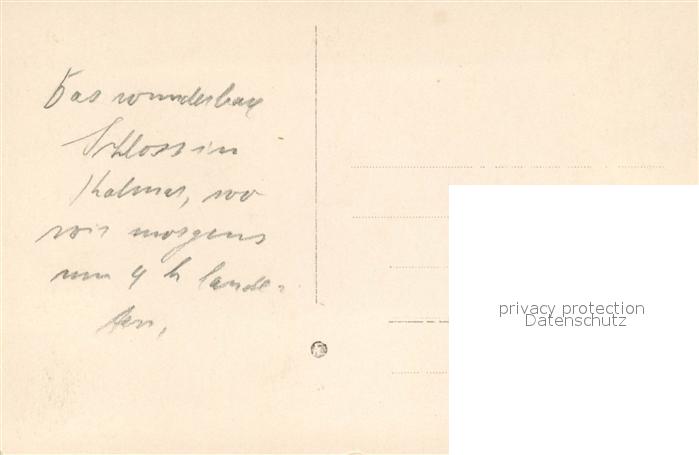 Das wunderbare
Schloss in
Kalmar, wo
wir morgens
um 4 h lande-
ten,
privacy protection
Datenschutz